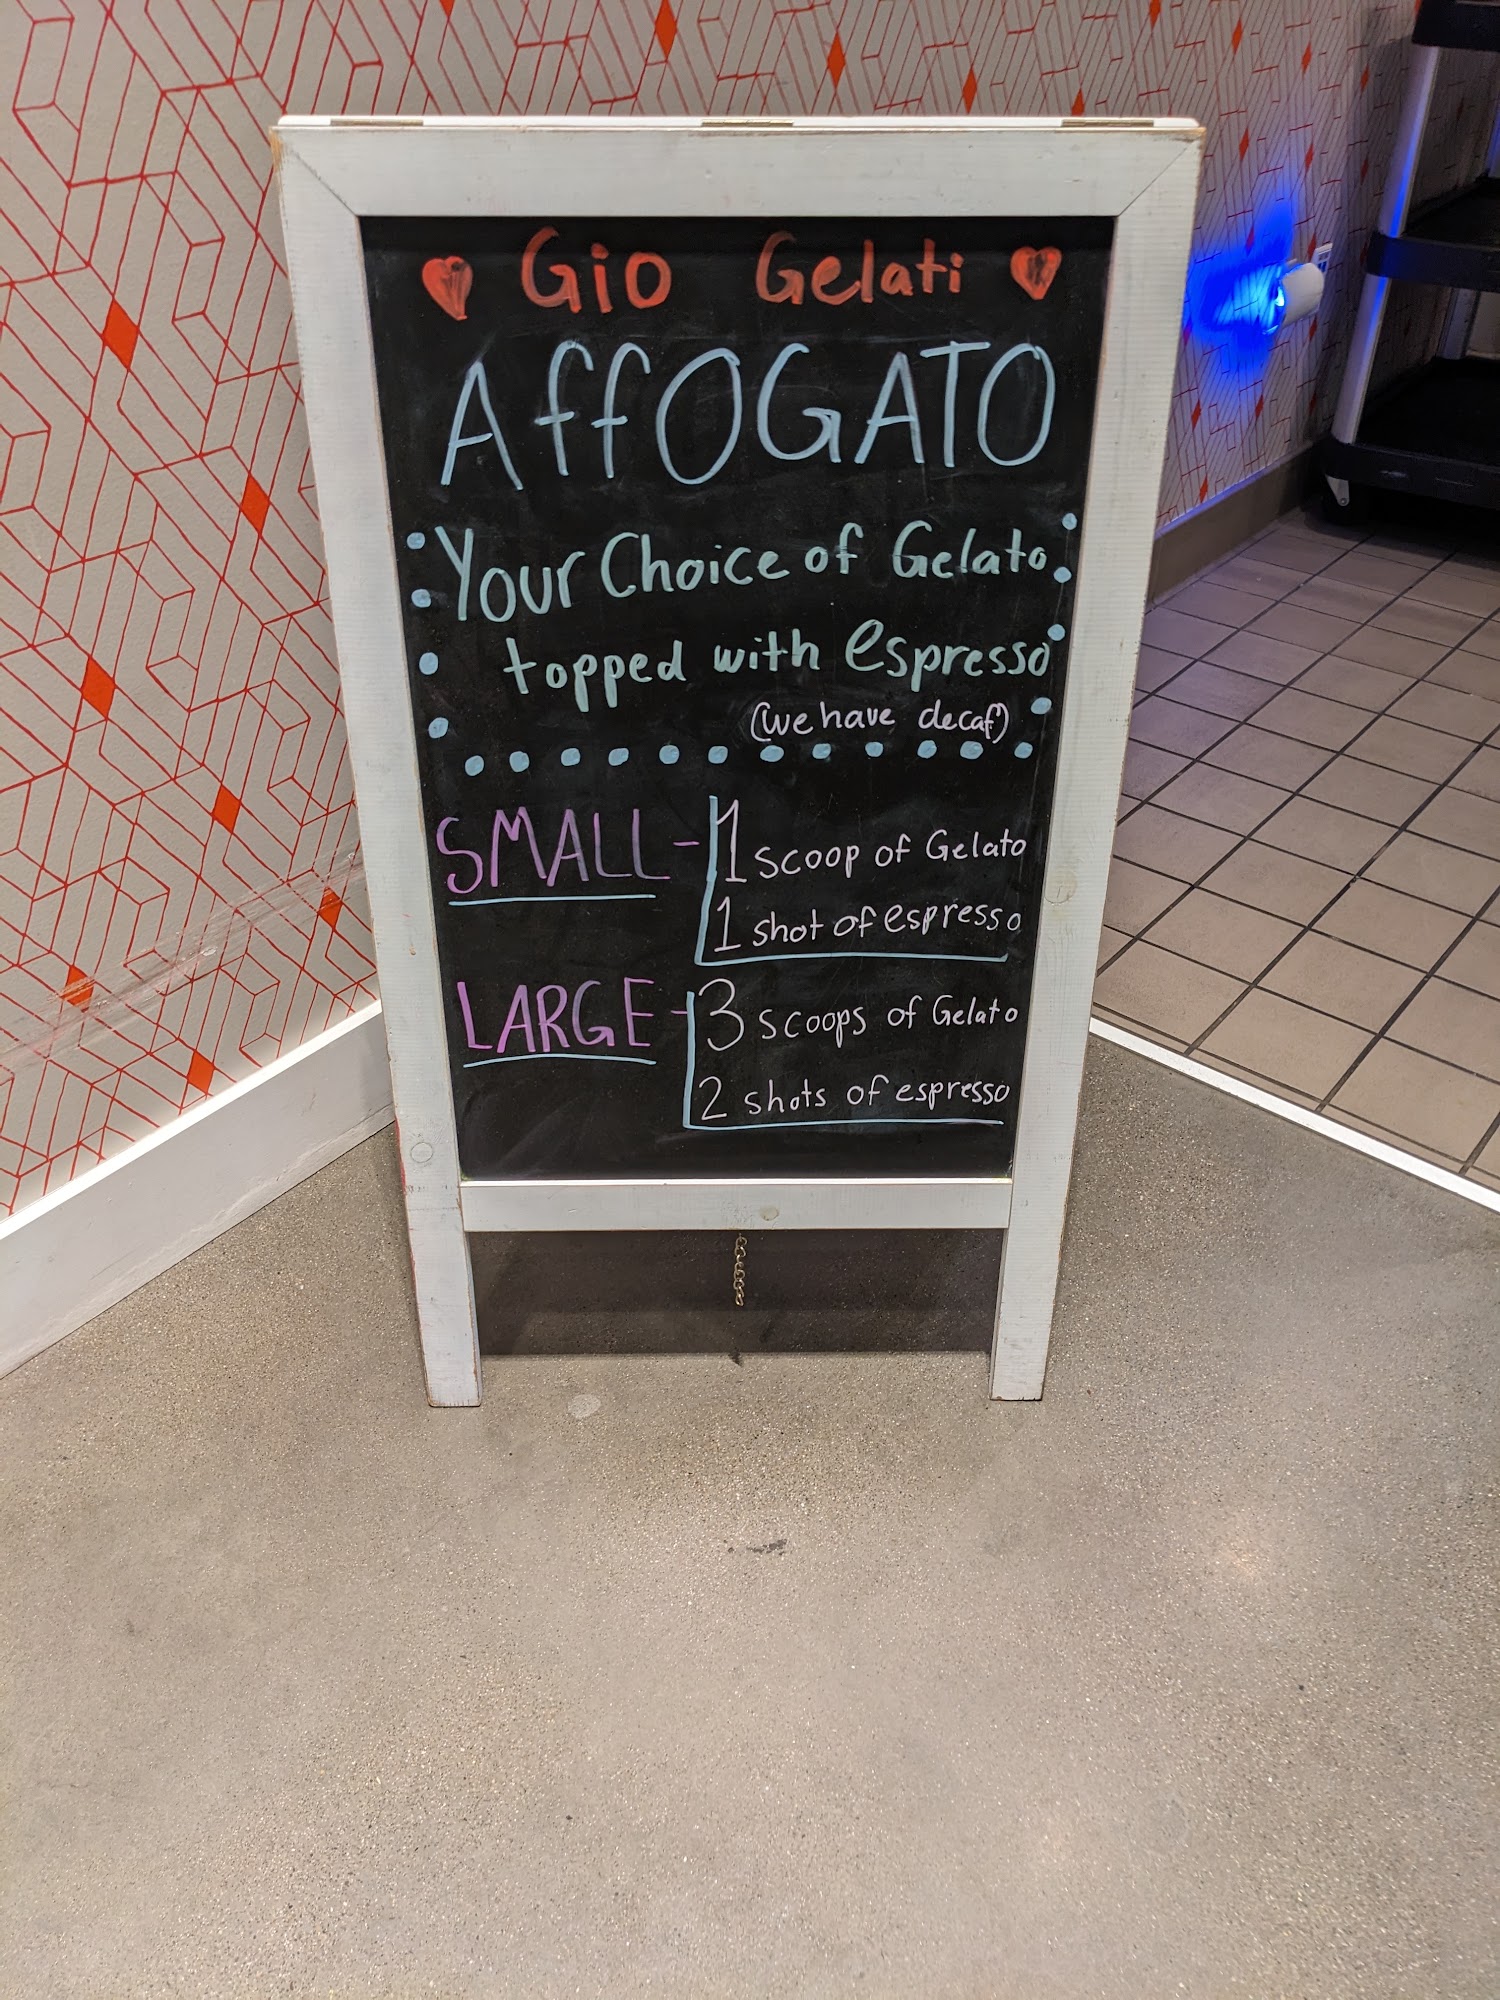 Gio Gelati
AffOGATO
Your Choice of Gelato
topped with espresso
(we have decaf)
SMALL - 1 scoop of Gelato
1 shot of espresso
LARGE - 3 scoops of Gelato
2 shots of espresso